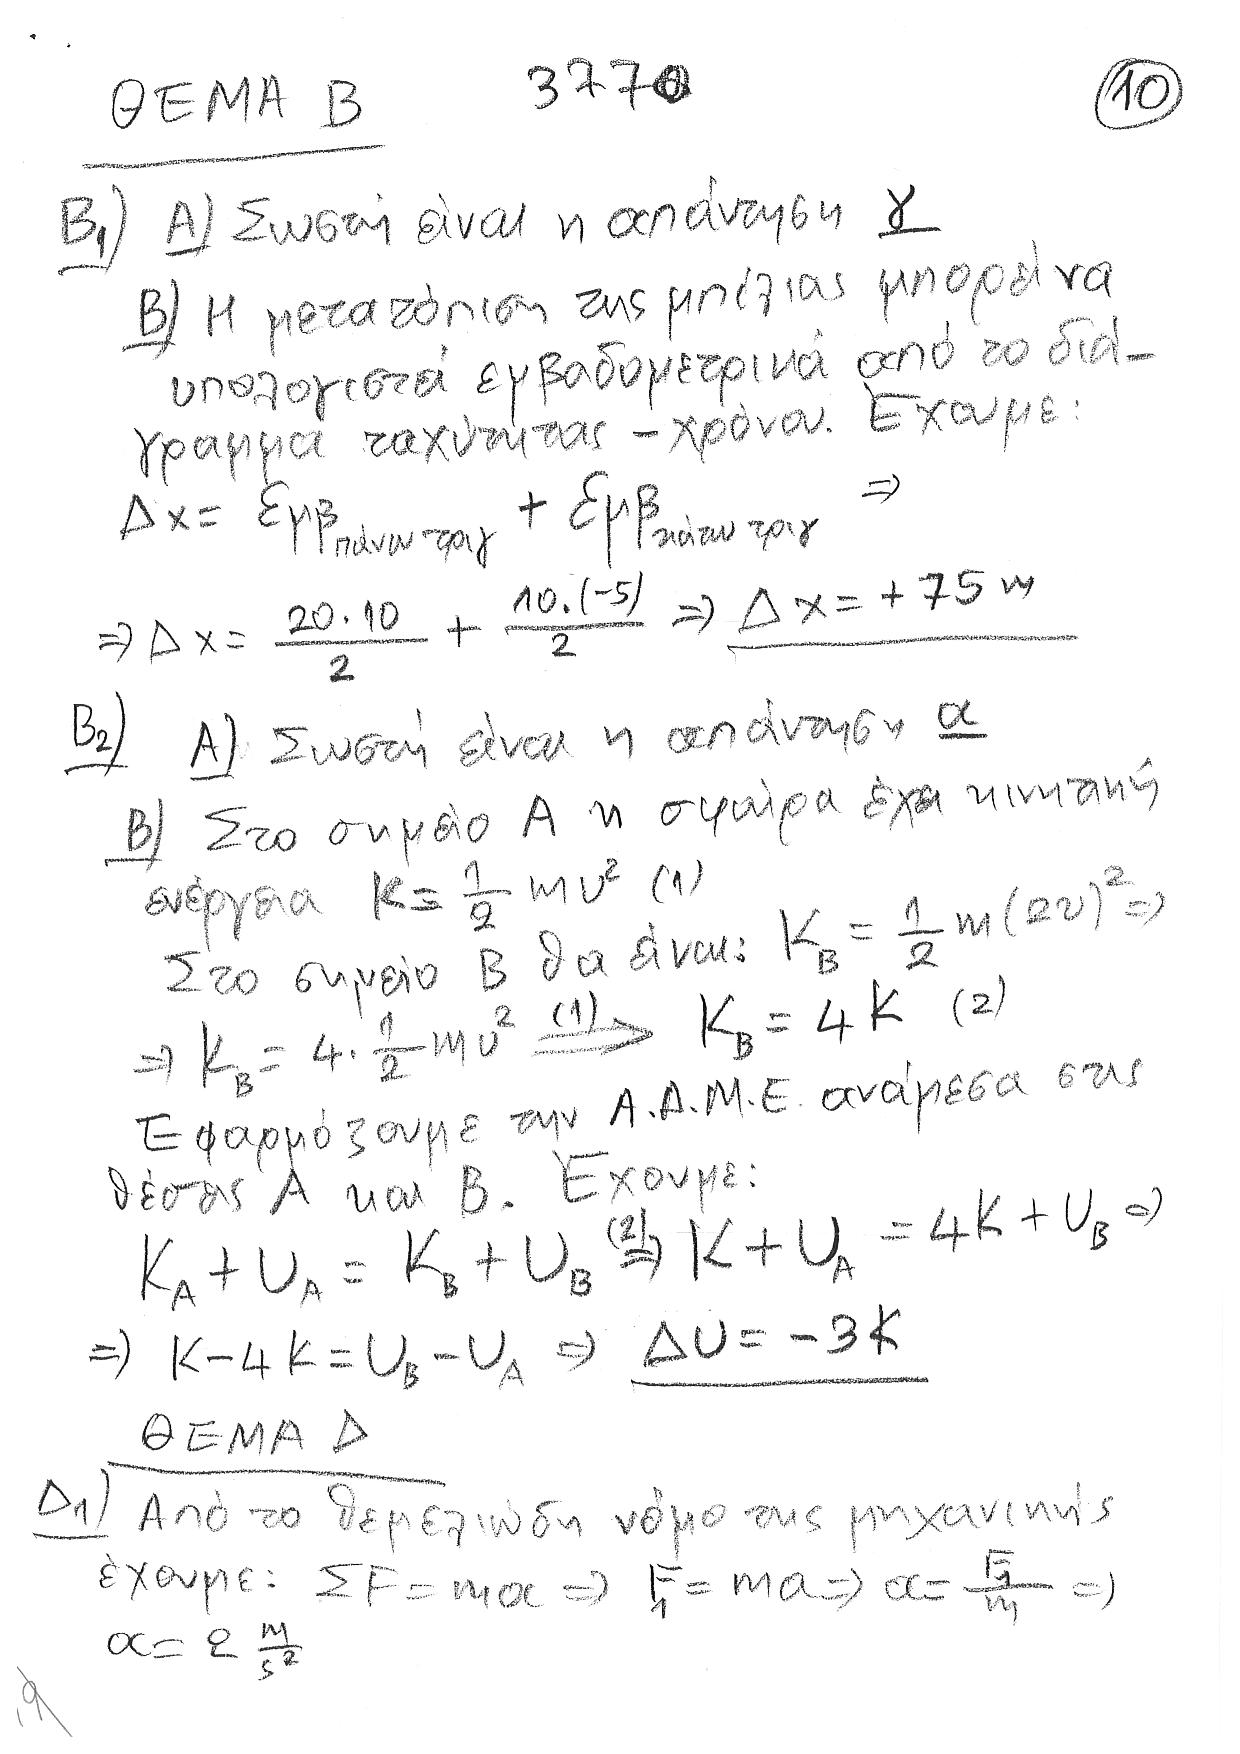 ΘΕΜΑ Β 3770 10
Β1) Α) Σωστή είναι η απάντηση γ
Β) Η μετατόπιση της μπίλιας μπορεί να
υπολογιστεί εμβαδομετρικά από το διά-
γραμμα ταχύτητας - χρόνου. Έχουμε:
Δx = Εμβ πάνω τριγ + Εμβ κάτω τριγ ⇒
⇒ Δx = 20·10/2 + 10·(-5)/2 ⇒ Δx = +75 m
Β2) Α) Σωστή είναι η απάντηση α
Β) Στο σημείο Α η σφαίρα έχει κινητική
ενέργεια K = 1/2 mυ² (1)
Στο σημείο Β θα είναι: K_B = 1/2 m(2υ)² ⇒
⇒ K_B = 4·1/2 mυ² (1)⇒ K_B = 4K (2)
Εφαρμόζουμε την Α.Δ.Μ.Ε. ανάμεσα στις
θέσεις Α και Β. Έχουμε:
K_A + U_A = K_B + U_B (2)⇒ K + U_A = 4K + U_B ⇒
⇒ K - 4K = U_B - U_A ⇒ ΔU = -3K
ΘΕΜΑ Δ
Δ1) Από το θεμελιώδη νόμο της μηχανικής
έχουμε: ΣF = mα ⇒ F_1 = mα ⇒ α = F_1/m ⇒
α = 2 m/s²